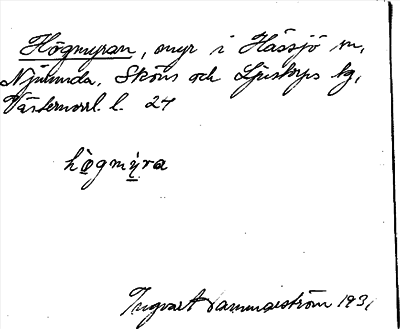 Högmyran, myr i Hässjö sn,
Njurunda, Sköns och Ljustorps tg,
Västernorrl. l. 24
högmýra
Ingvart Hammarström 1931